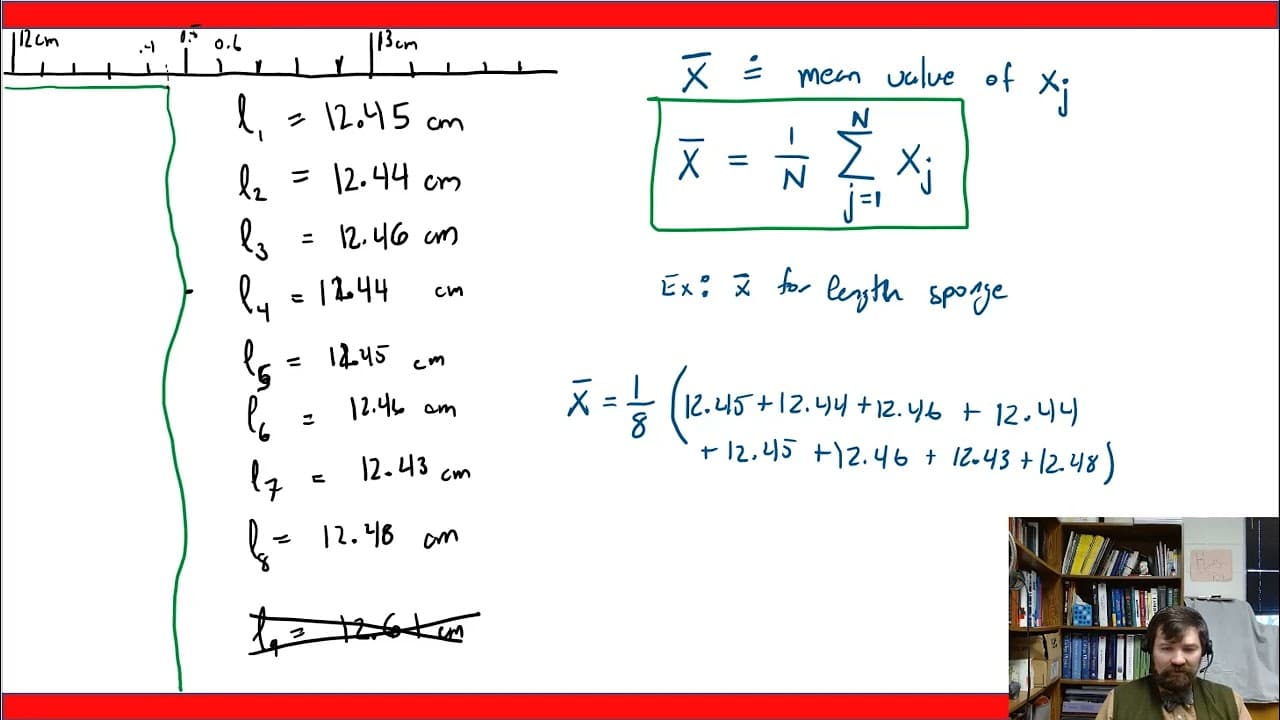 12cm .4 0.5 0.6 13cm
l₁ = 12.45 cm
l₂ = 12.44 cm
l₃ = 12.46 cm
l₄ = 12.44 cm
l₅ = 12.45 cm
l₆ = 12.46 cm
l₇ = 12.43 cm
l₈ = 12.48 cm
l₉ = 12.61 cm
x̄ ≐ mean value of xⱼ
x̄ = 1/N ∑_{j=1}^{N} xⱼ
Ex: x̄ for length sponge
x̄ = 1/8 (12.45 + 12.44 + 12.46 + 12.44
+ 12.45 + 12.46 + 12.43 + 12.48)